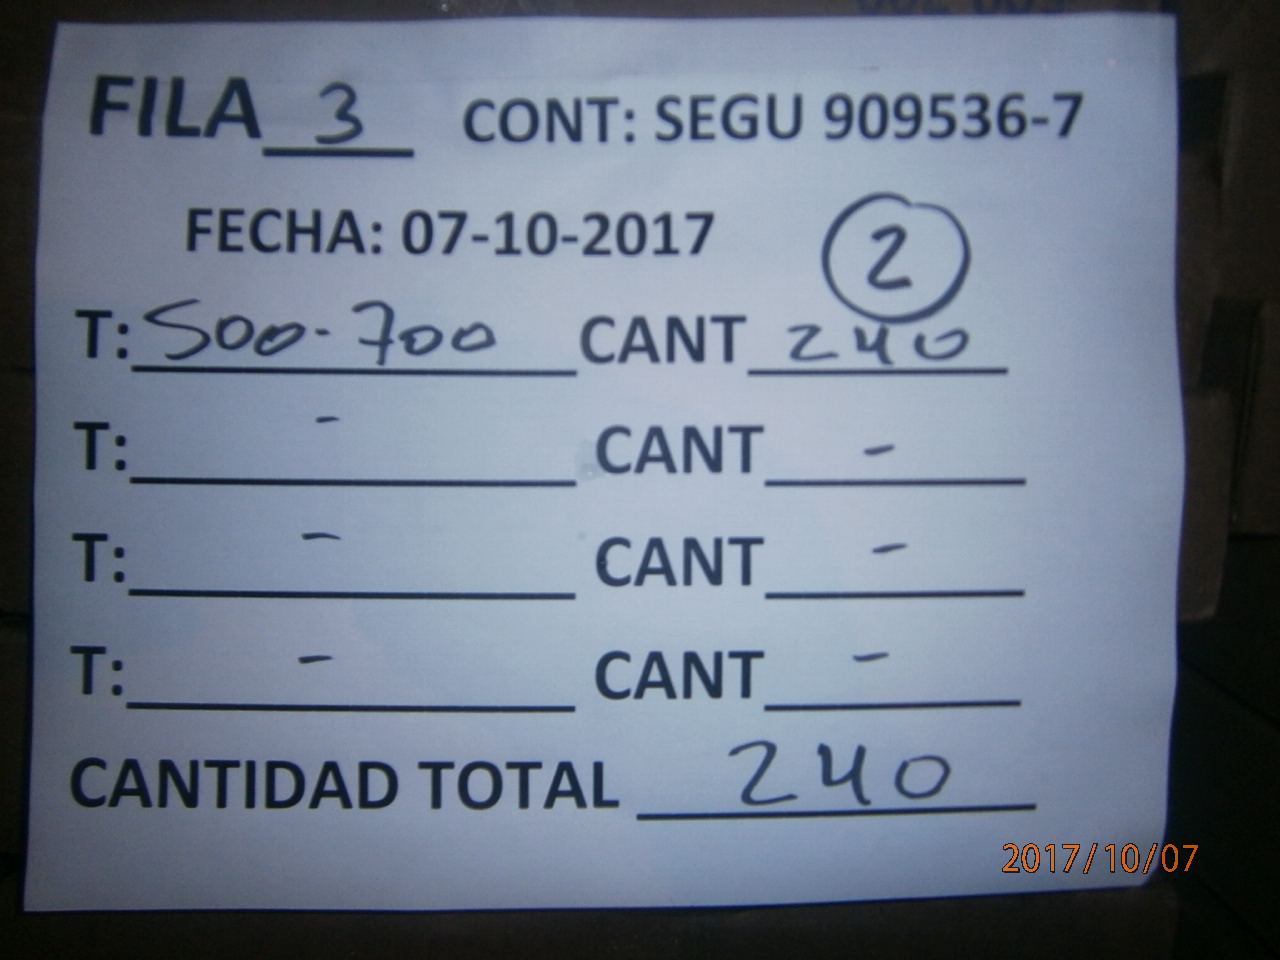 FILA 3 CONT: SEGU 909536-7
FECHA: 07-10-2017 2
T: 500-700 CANT 240
T: - CANT -
T: - CANT -
T: - CANT -
CANTIDAD TOTAL 240
2017/10/07